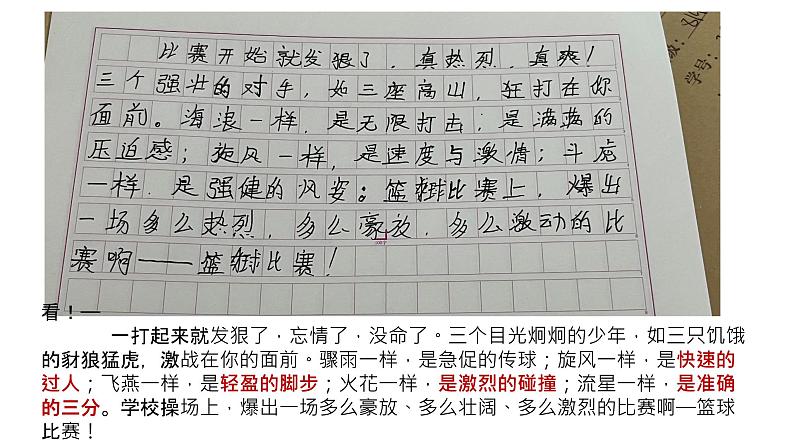 比赛开始就发狠了，真热烈，真爽！
三个强壮的对手，如三座高山，狂打在你
面前。海浪一样，是无限打击；是满满的
压迫感；旋风一样，是速度与激情；斗龙
一样，是强健的风姿。篮球比赛上，爆出
一场多么热烈，多么豪放，多么激动的比
赛啊——篮球比赛！
学号：
看！一
一打起来就发狠了，忘情了，没命了。三个目光炯炯的少年，如三只饥饿
的豺狼猛虎，激战在你的面前。骤雨一样，是急促的传球；旋风一样，是快速的
过人；飞燕一样，是轻盈的脚步；火花一样，是激烈的碰撞；流星一样，是准确
的三分。学校操场上，爆出一场多么豪放、多么壮阔、多么激烈的比赛啊—篮球
比赛！